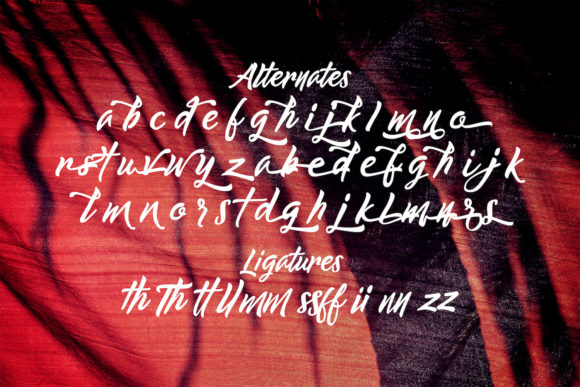 Alternates
a b c d e f g h i j k l m n o
r s t u v w y z a b e d e f g h i j k
l m n o r s t d g h j k l m n r s
Ligatures
th Th tt ll mm ss ff ii nn zz